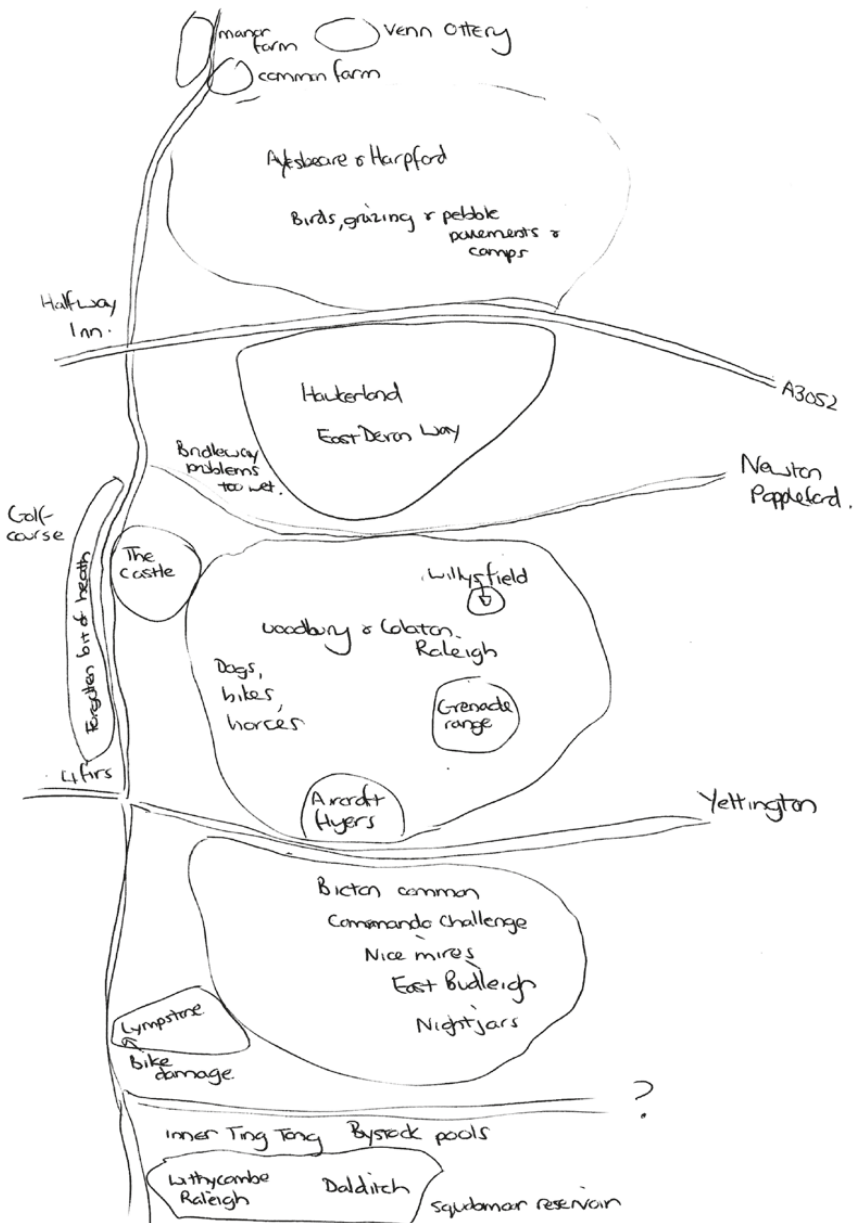 manor
farm
Venn Ottery
common farm
Aylesbeare & Harpford
Birds, grazing & pebble
pavements &
camps
Halfway
Inn.
A3052
Hawkerland
East Devon Way
Bridleway
problems
too wet.
Newton
Poppleford.
Golf
course
The
castle
Forgotten bit of heath
Willysfield
Woodbury & Colaton
Raleigh
Dogs,
bikes,
horces
Grenade
range
4 firs
Aircraft
flyers
Yettington
Bicton common
Commando challenge
Nice mires
East Budleigh
Nightjars
Lympstone
Bike
damage.
?
Inner Ting Tong Bystock pools
Withycombe
Raleigh
Dalditch
Squabmoor reservoir